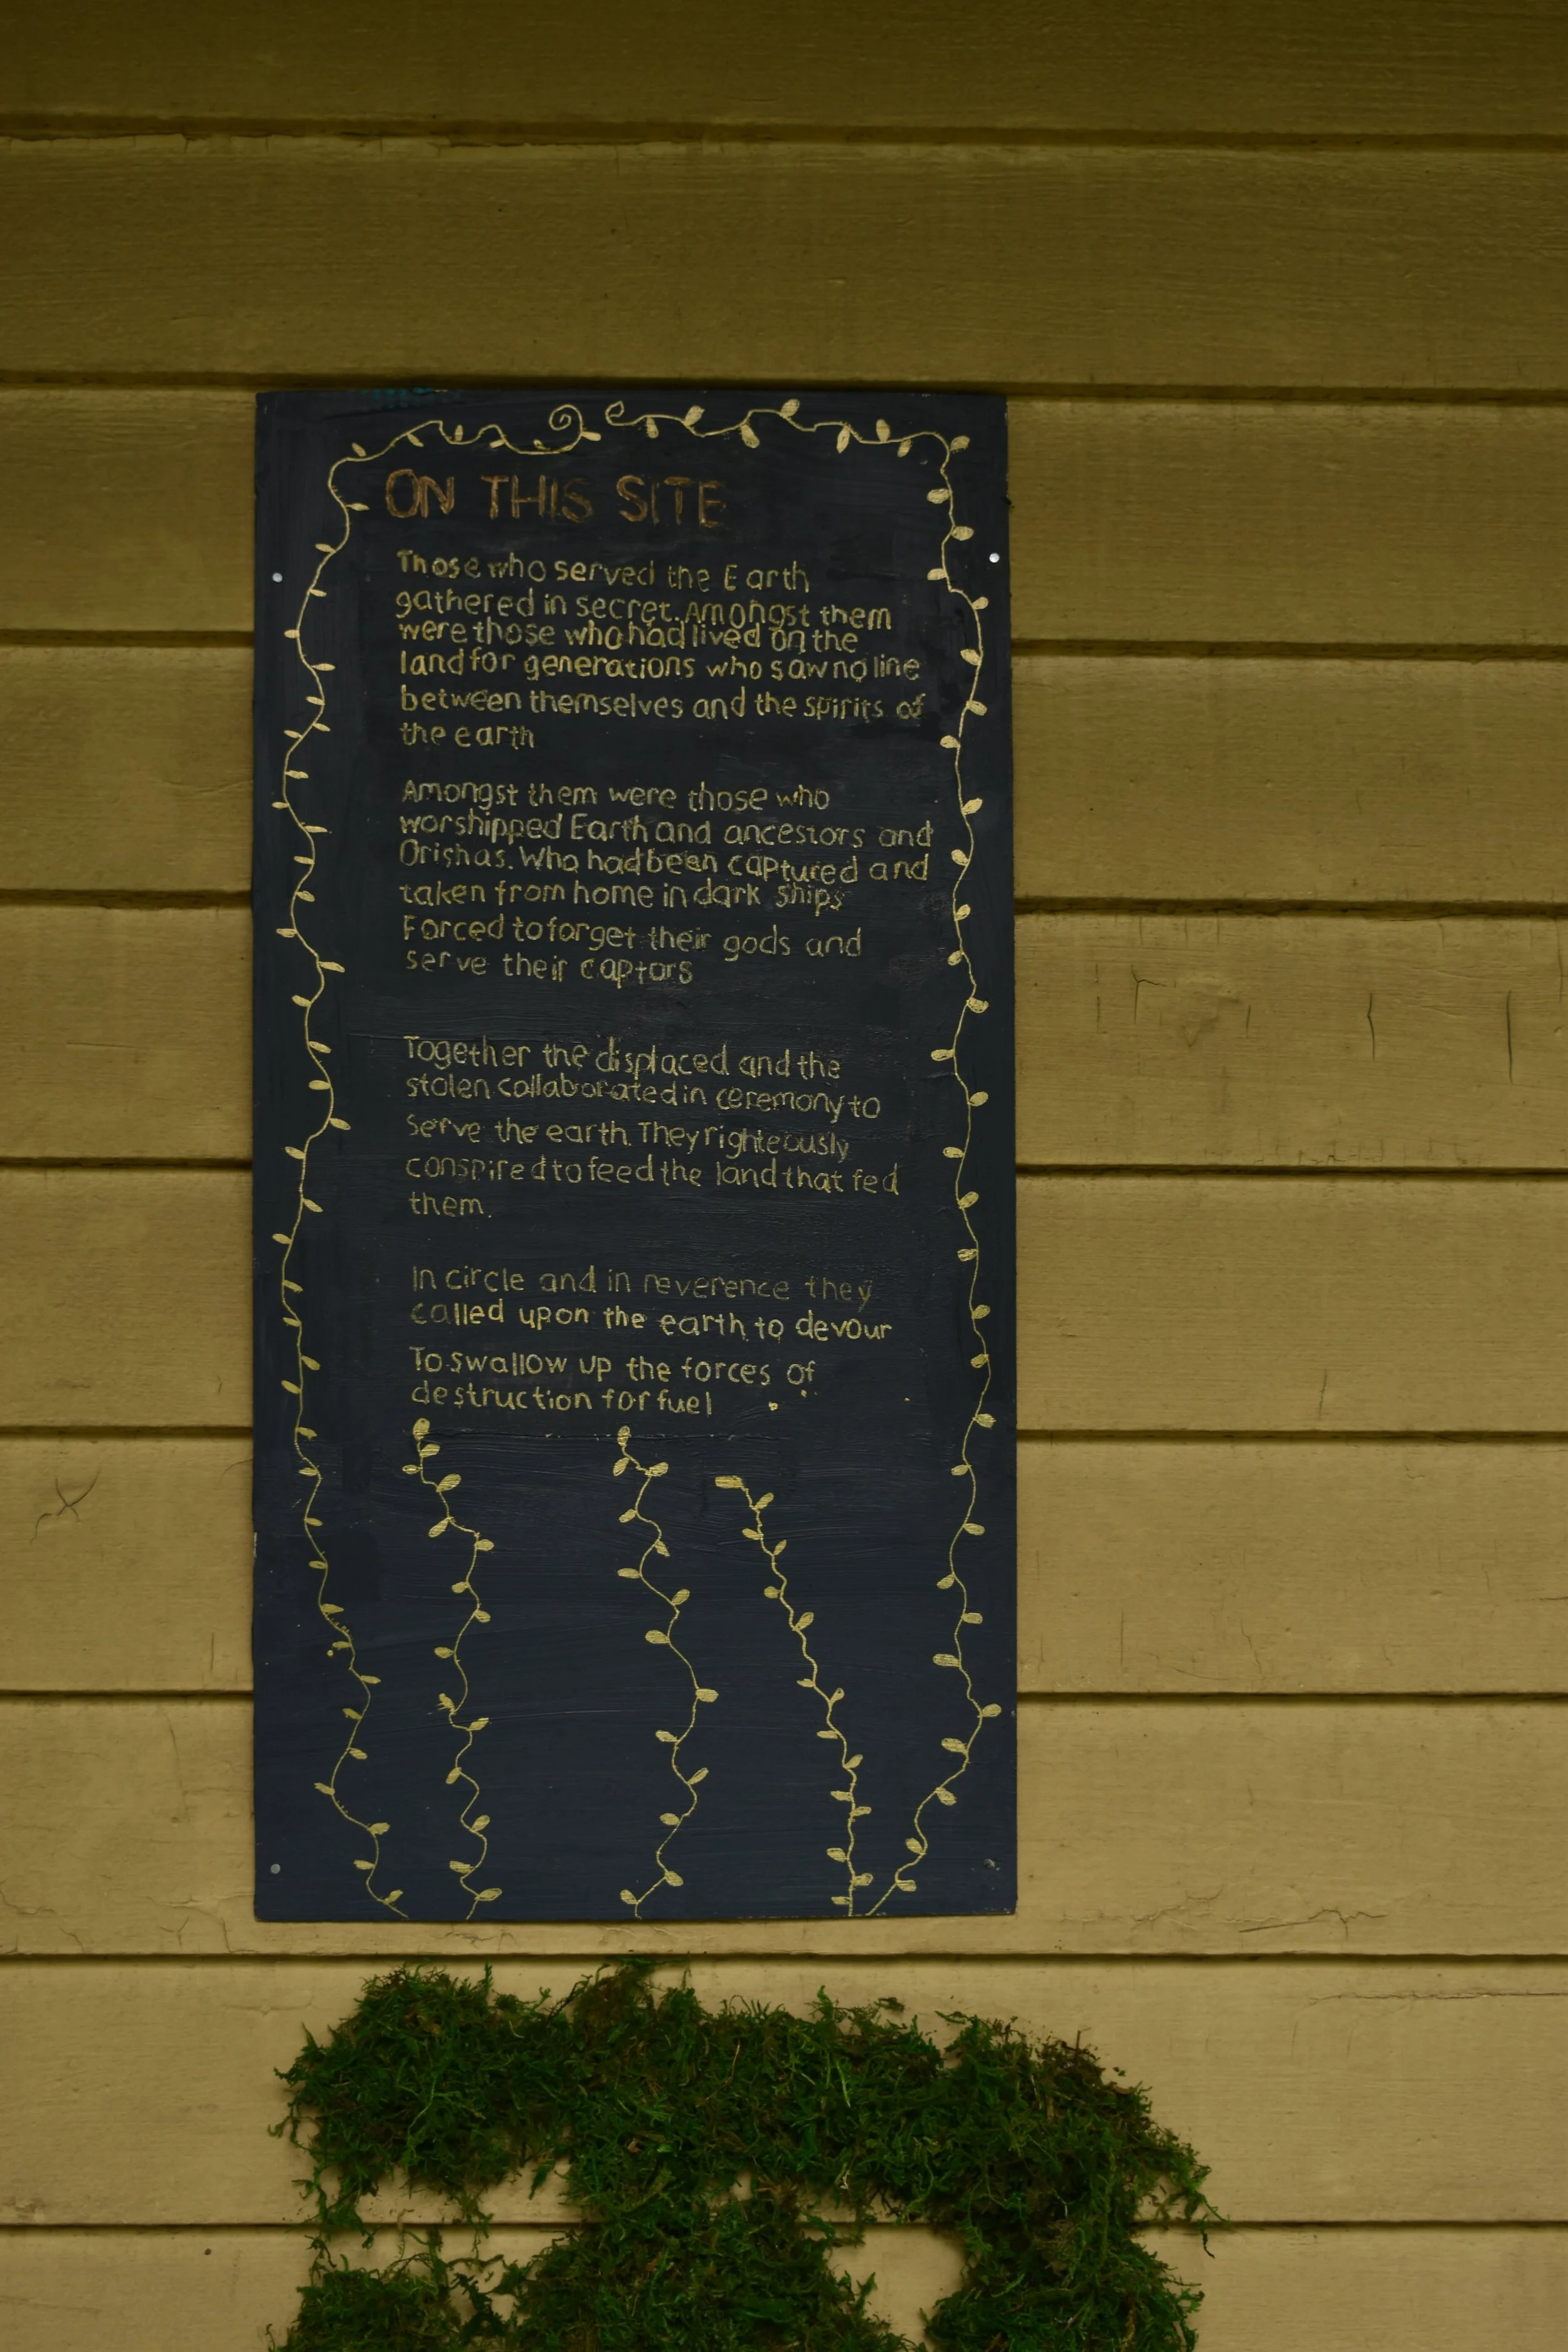 ON THIS SITE
Those who served the Earth
gathered in secret. Amongst them
were those who had lived on the
land for generations who saw no line
between themselves and the spirits of
the earth
Amongst them were those who
worshipped Earth and ancestors and
Orishas. Who had been captured and
taken from home in dark ships
Forced to forget their gods and
serve their captors
Together the displaced and the
stolen collaborated in ceremony to
serve the earth. They righteously
conspired to feed the land that fed
them.
In circle and in reverence they
called upon the earth to devour
To swallow up the forces of
destruction for fuel